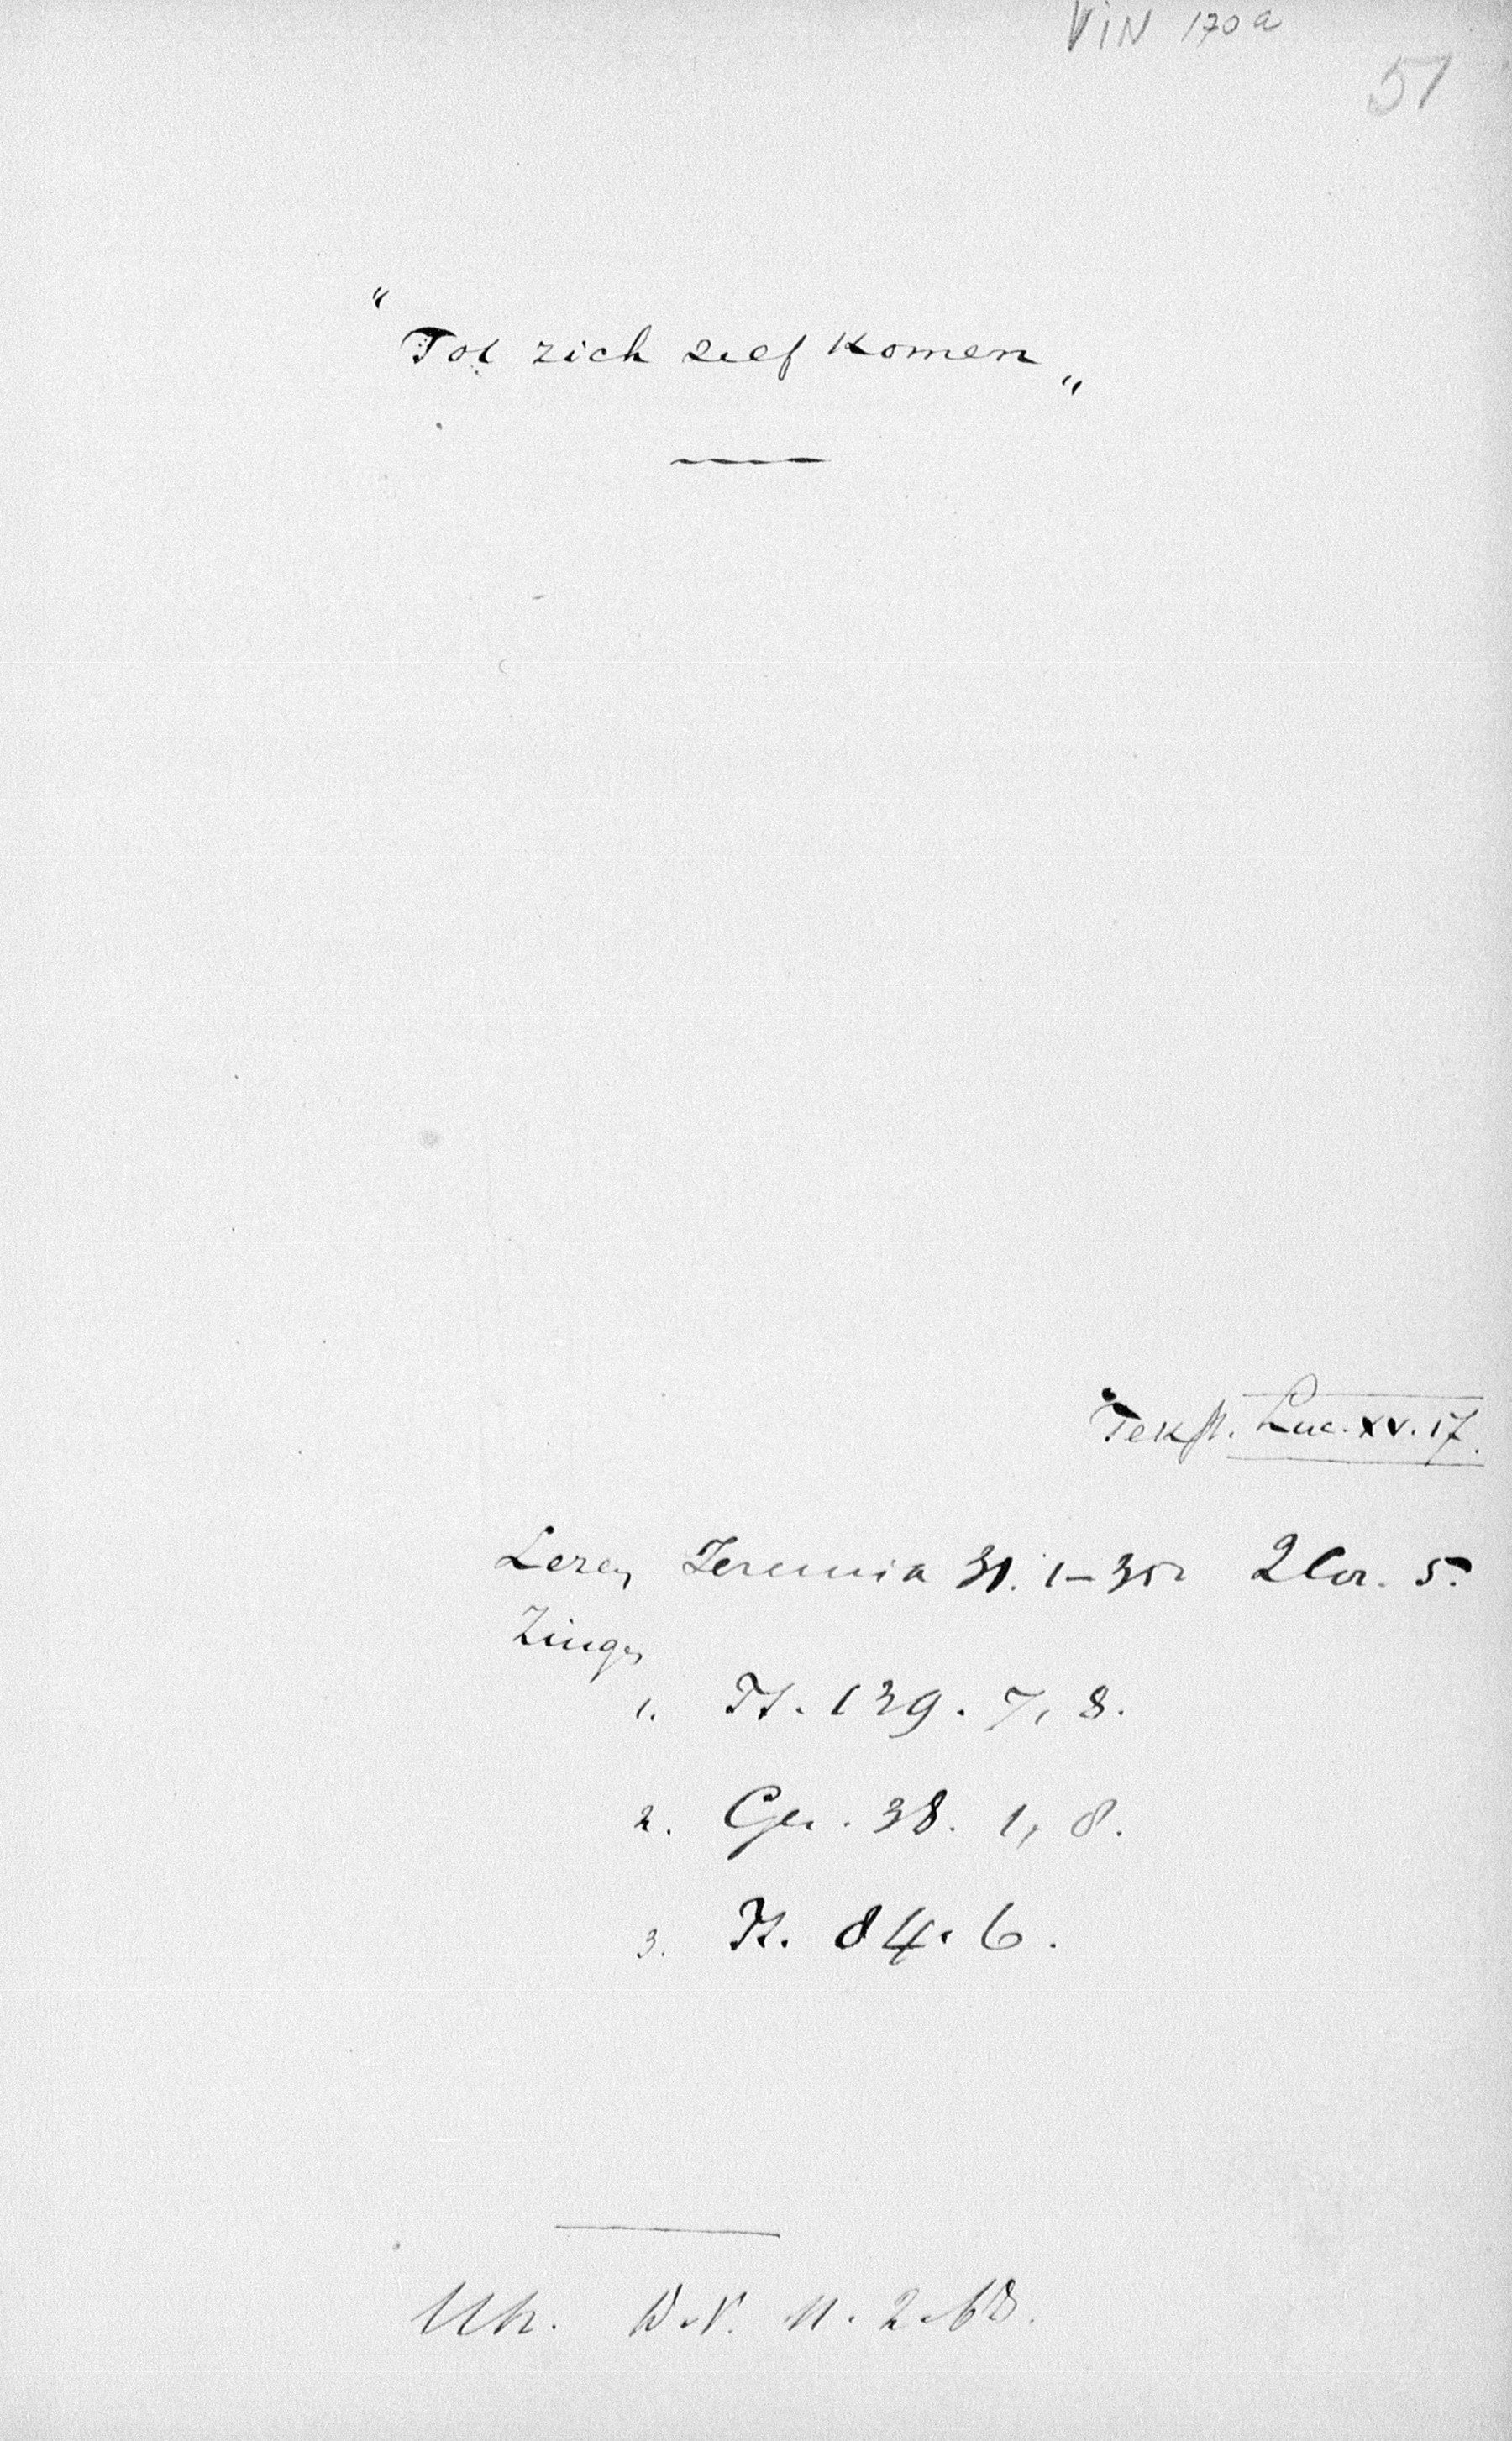 VIN 170a
51
"Tot zich zelf komen"
Tekst. Luc. XV. 17.
Lezen Jeremia 31. 1-35. 2 Cor. 5.
Zingen
1. Ps. 139. 7, 8.
2. Gez. 38. 1, 8.
3. Ps. 84. 6.
Utr. D. V. 11. 2. 68.